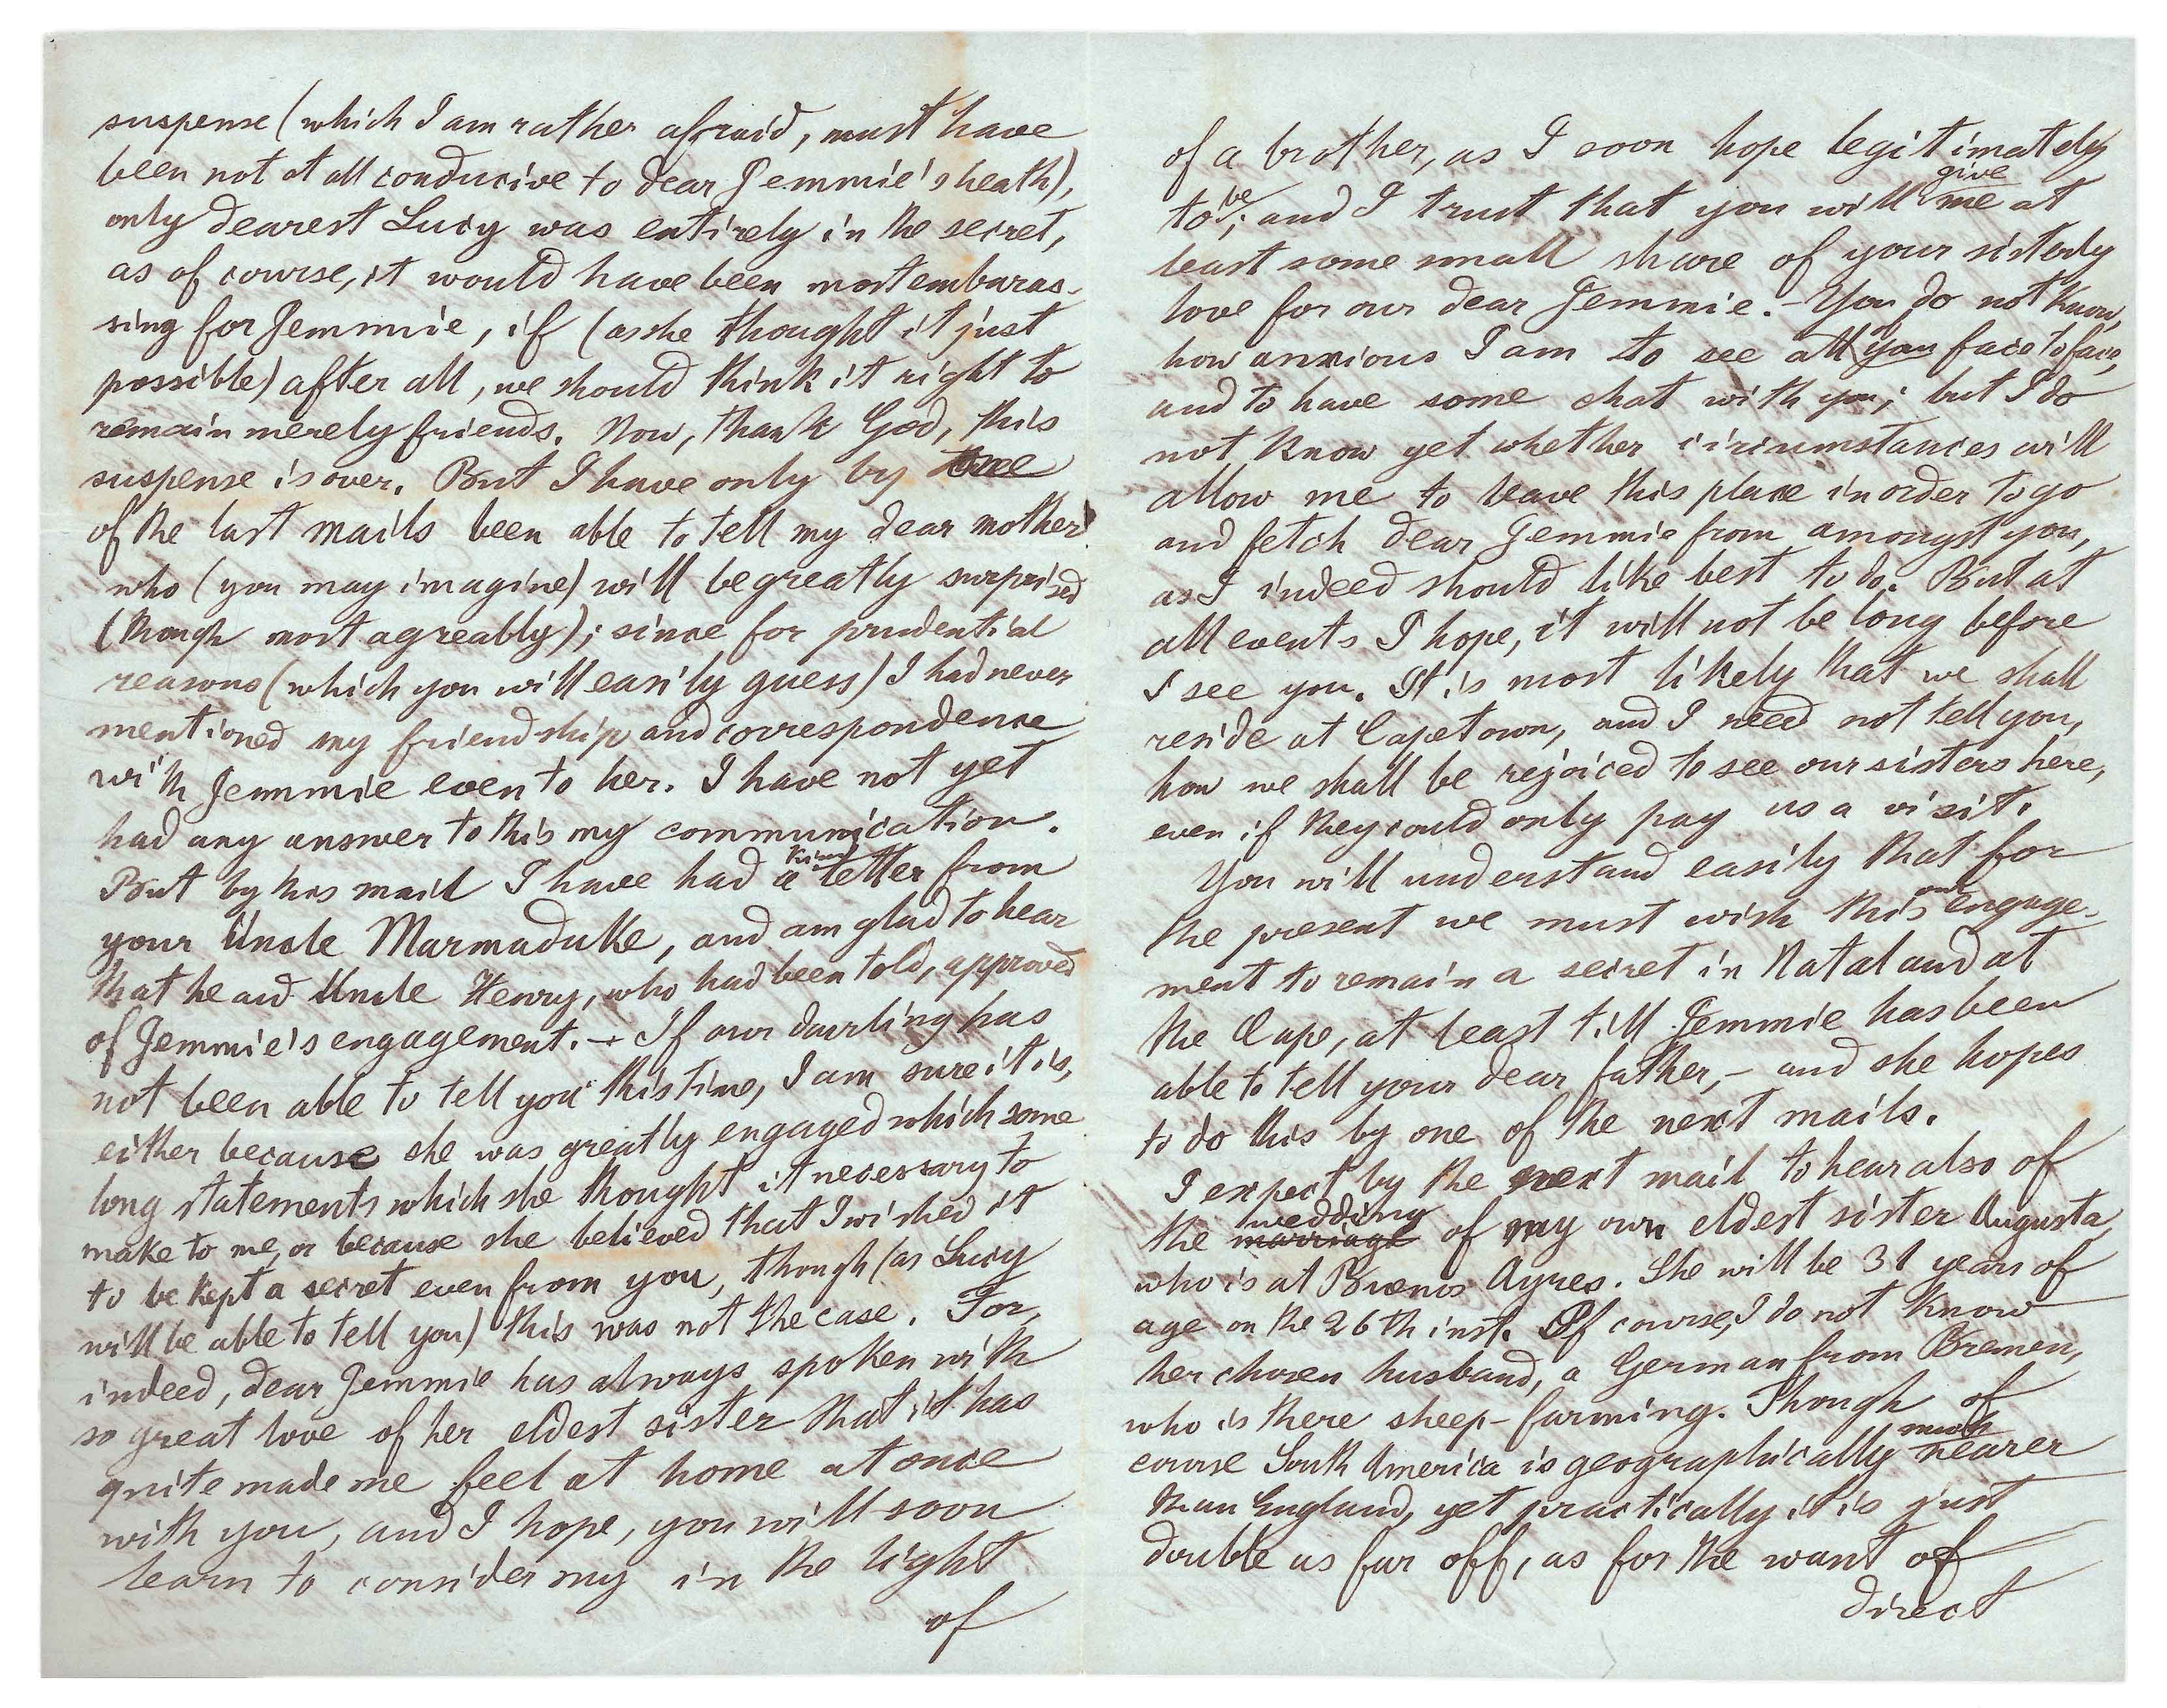 suspense (which I am rather afraid, must have
been not at all conducive to dear Jemmie's heath),
only dearest Lucy was entirely in the secret,
as of course, it would have been most embaras-
sing for Jemmie, if (as she thought it just
possible) after all, we should think it right to
remain merely friends. Now, thank God, this
suspense is over. But I have only by
of the last mails been able to tell my dear mother
who (you may imagine) will be greatly surprised
(though most agreably); since for prudential
reasons (which you will easily guess) I had never
mentioned my friendship and correspondence
with Jemmie even to her. I have not yet
had any answer to this my communication.
But by this mail I have had a kind letter from
your Uncle Marmaduke, and am glad to hear
that he and Uncle Henry, who had been told, approved
of Jemmie's engagement. – If our darling has
not been able to tell you this time, I am sure it is,
either because she was greatly engaged which some
long statements which she thought it necessary to
make to me, or because she believed that I wished it
to be kept a secret even from you, though (as Lucy
will be able to tell you) this was not the case. For,
indeed, dear Jemmie has always spoken with
so great love of her eldest sister that it has
quite made me feel at home at once
with you, and I hope, you will soon
learn to consider my in the light
of
of a brother, as I soon hope legitimately
to be; and I trust that you will give me at
least some small share of your sisterly
love for our dear Jemmie. – You do not know,
how anxious I am to see all of you face to face,
and to have some chat with you; but I do
not know yet whether circumstances will
allow me to leave this place in order to go
and fetch dear Jemmie from amongst you,
as I indeed should like best to do. But at
all events I hope, it will not be long before
I see you. It is most likely that we shall
reside at Capetown, and I need not tell you,
how we shall be rejoiced to see our sisters here,
even if they could only pay us a visit.
You will understand easily that for
the present we must wish this our engage-
ment to remain a secret in Natal and at
the Cape, at least till Jemmie has been
able to tell your dear father, – and she hopes
to do this by one of the next mails.
I expect by the next mail to hear also of
the marriage wedding of my own eldest sister Augusta,
who is at Buenos Ayres. She will be 31 years of
age on the 26th inst. Of course, I do not know
her chosen husband, a German from Bremen,
who is there sheep-farming. Though of
course South America is geographically much nearer
than England, yet practically it is just
double as far off, as for the want of
direct